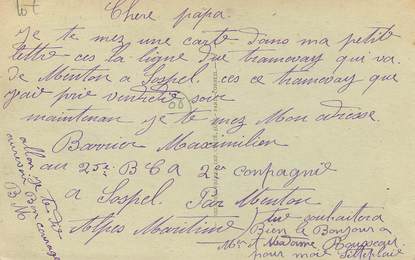 Chere papa.
Je te mez une carte dans ma petit
lettre ces la ligne due tramevay qui va.
de Menton a Sospel. ces ce tramevay que
jai prie vendredie soir
maintenan je te mez Mon adresse.
Barnier Maximilien
au 25e B C A 2em conpagnie
a Sospel. Par Menton
Alpes Maritime
tue souhaitera
Bien le Bonjour a
Mr et Madame Rousseau
pour moi
allon je te dit
aurevoir Bon courage
B M